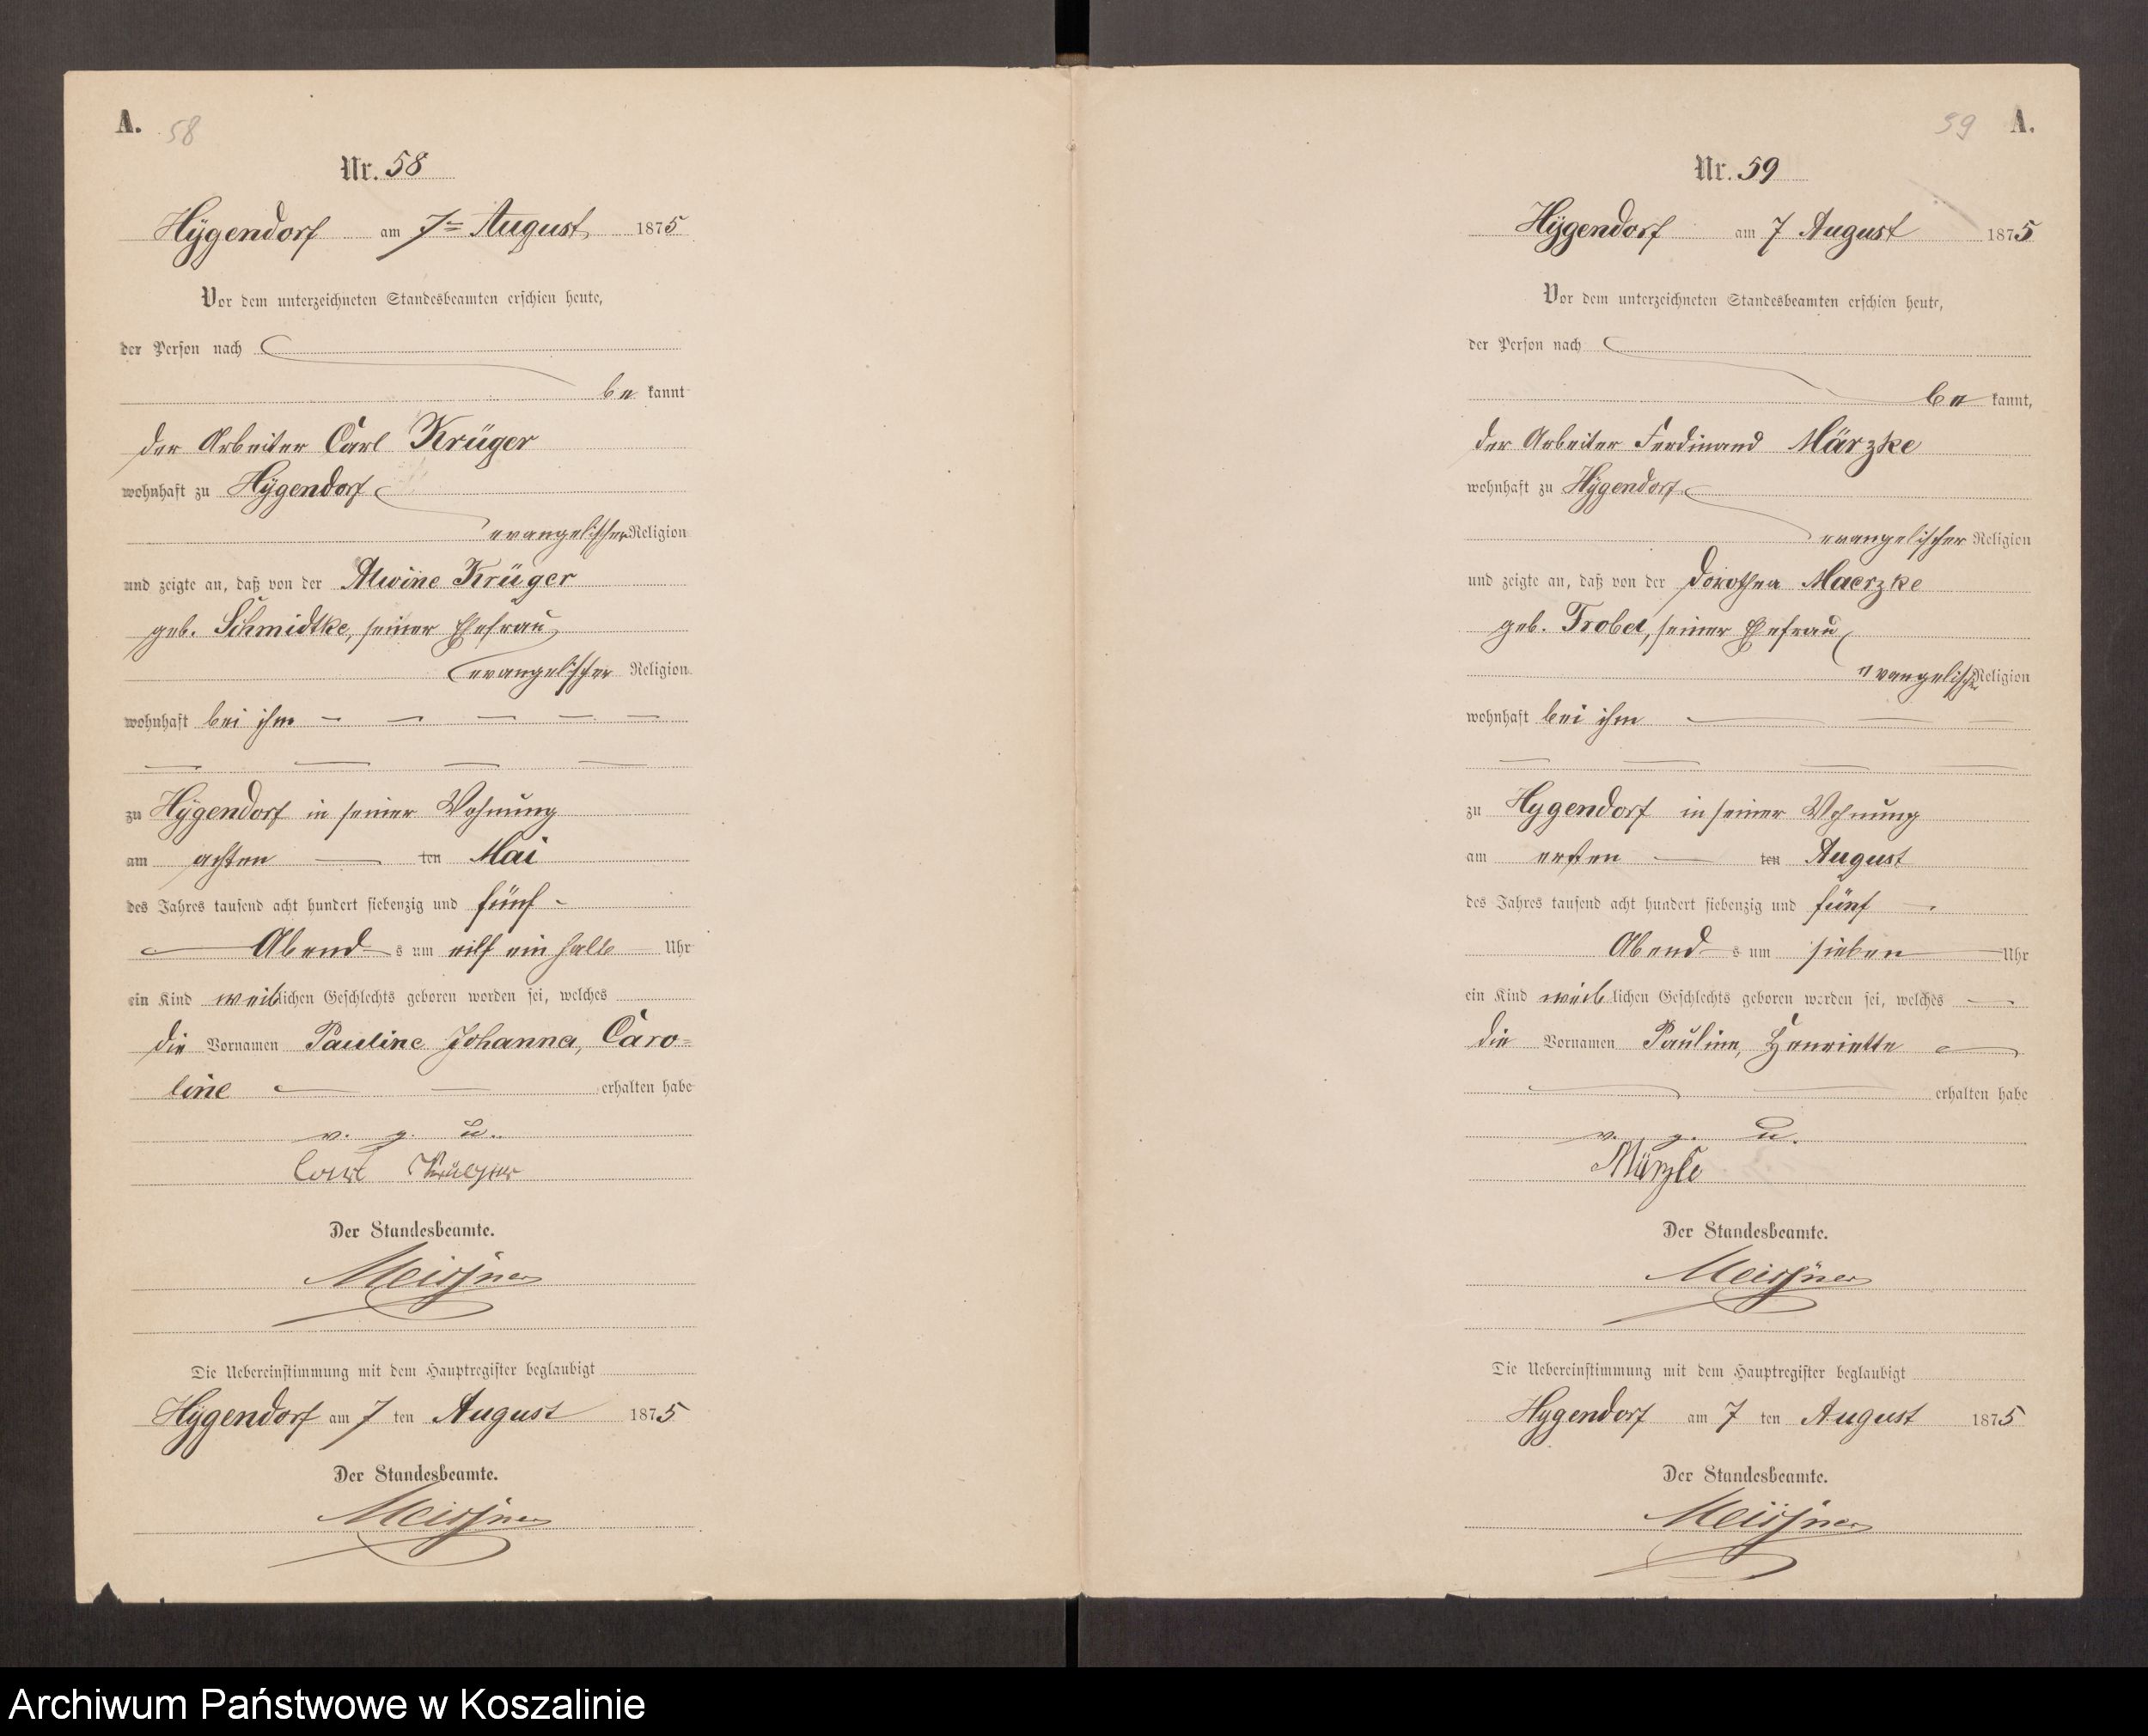 A. 58
Nr. 58
Hÿgendorf am 7ten August 1875
Vor dem unterzeichneten Standesbeamten erschien heute,
der Person nach
be kannt
der Arbeiter Carl Krüger
wohnhaft zu Hÿgendorf
evangelischer Religion
und zeigte an, daß von der Alwine Krüger
geb. Schmidtke, seiner Ehefrau
evangelischer Religion
wohnhaft bei ihm
zu Hÿgendorf in seiner Wohnung
am achten ten Mai
des Jahres tausend acht hundert siebenzig und fünf
Abend s um eilf ein halb Uhr
ein Kind weiblichen Geschlechts geboren worden sei, welches
die Vornamen Pauline Johanna, Caro=
line erhalten habe
v. g. u.
Carl Krüger
Der Standesbeamte.
Meissner
Die Uebereinstimmung mit dem Hauptregister beglaubigt
Hÿgendorf am 7 ten August 1875
Der Standesbeamte.
Meissner
59 A.
Nr. 59
Hÿgendorf am 7 August 1875
Vor dem unterzeichneten Standesbeamten erschien heute,
der Person nach
be kannt,
der Arbeiter Ferdinand Märzke
wohnhaft zu Hÿgendorf
evangelischer Religion
und zeigte an, daß von der Dorothea Maerzke
geb. , seiner Ehefrau
evangelischer Religion
wohnhaft bei ihm
zu Hygendorf in seiner Wohnung
am ersten ten August
des Jahres tausend acht hundert siebenzig und fünf
Abend s um sieben Uhr
ein Kind weiblichen Geschlechts geboren worden sei, welches
die Vornamen Pauline, Henriette
erhalten habe
v. g. u.
Märzke
Der Standesbeamte.
Meissner
Die Uebereinstimmung mit dem Hauptregister beglaubigt
Hygendorf am 7 ten August 1875
Der Standesbeamte.
Meissner
Archiwum Państwowe w Koszalinie